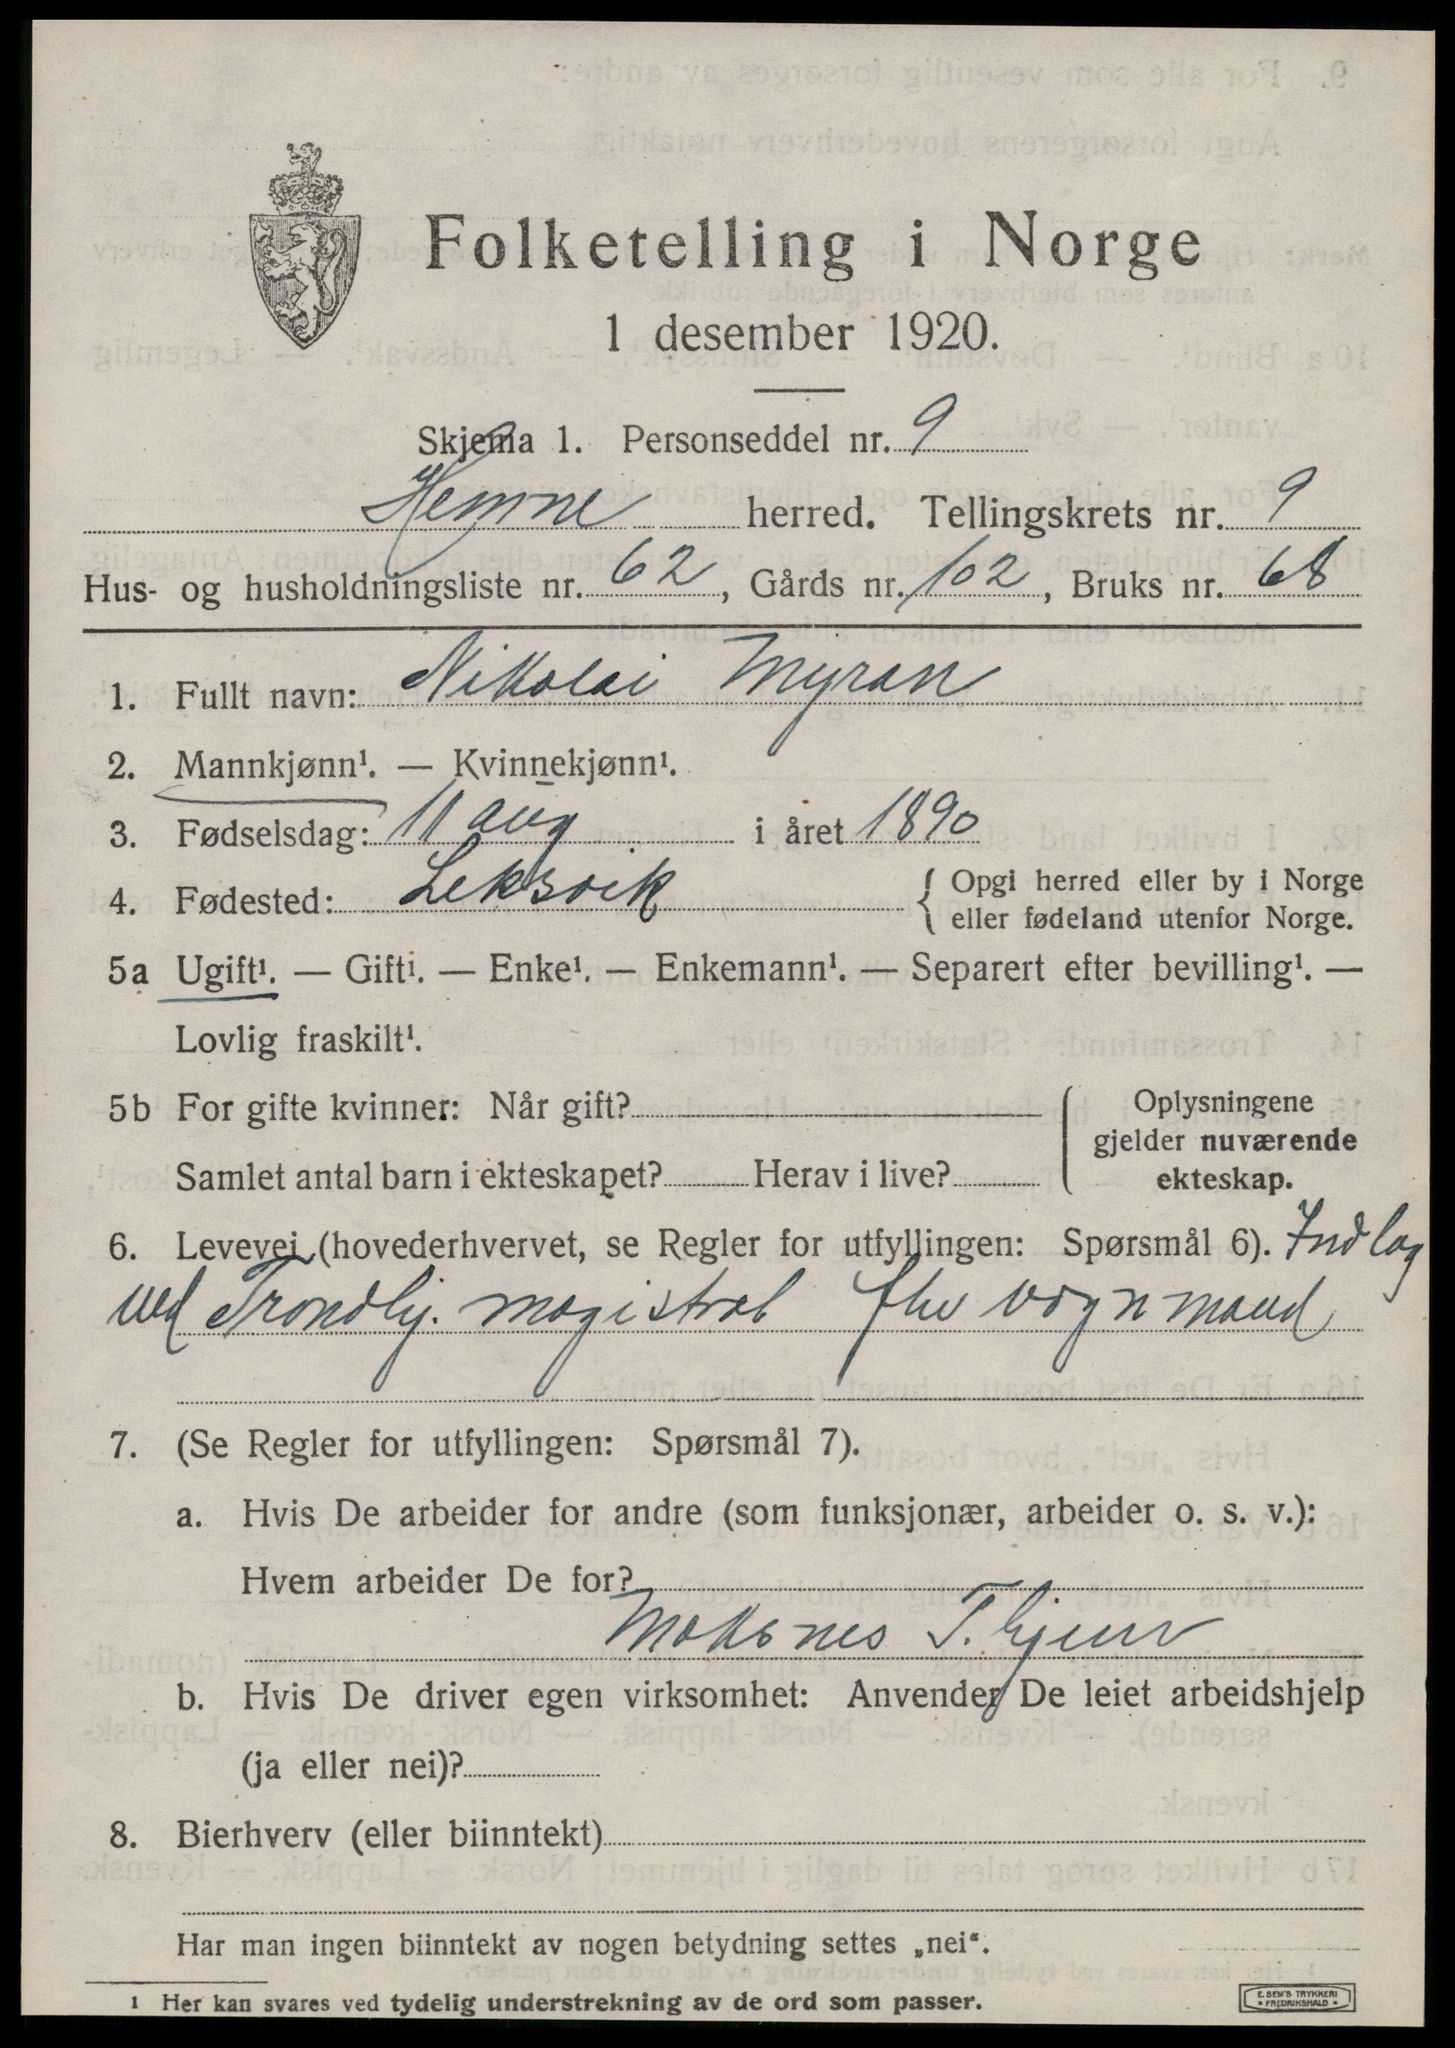 Folketelling i Norge
1 desember 1920.
Skjema 1. Personseddel nr. 9
Hemne herred. Tellingskrets nr. 9
Hus- og husholdningsliste nr. 62, Gårds nr. 102, Bruks nr. 68
1. Fullt navn: Nikolai Myran
2. Mannkjønn¹. — Kvinnekjønn¹.
3. Fødselsdag: 11 aug i året 1890
4. Fødested: Leksvik { Opgi herred eller by i Norge
eller fødeland utenfor Norge.
5a Ugift¹. — Gift¹. — Enke¹. — Enkemann¹. — Separert efter bevilling¹. —
Lovlig fraskilt¹.
5b For gifte kvinner: Når gift?
Samlet antal barn i ekteskapet? Herav i live?
Oplysningene
gjelder nuværende
ekteskap.
6. Levevei (hovederhvervet, se Regler for utfyllingen: Spørsmål 6). Indlag
ved Trondhj. magistrat fhv vognmand
7. (Se Regler for utfyllingen: Spørsmål 7).
a. Hvis De arbeider for andre (som funksjonær, arbeider o. s. v.):
Hvem arbeider De for?
b. Hvis De driver egen virksomhet: Anvender De leiet arbeidshjelp
(ja eller nei)?
8. Bierhverv (eller biinntekt)
Har man ingen biinntekt av nogen betydning settes „nei“.
1 Her kan svares ved tydelig understrekning av de ord som passer.
E. SEM'S TRYKKERI
FREDRIKSHALD